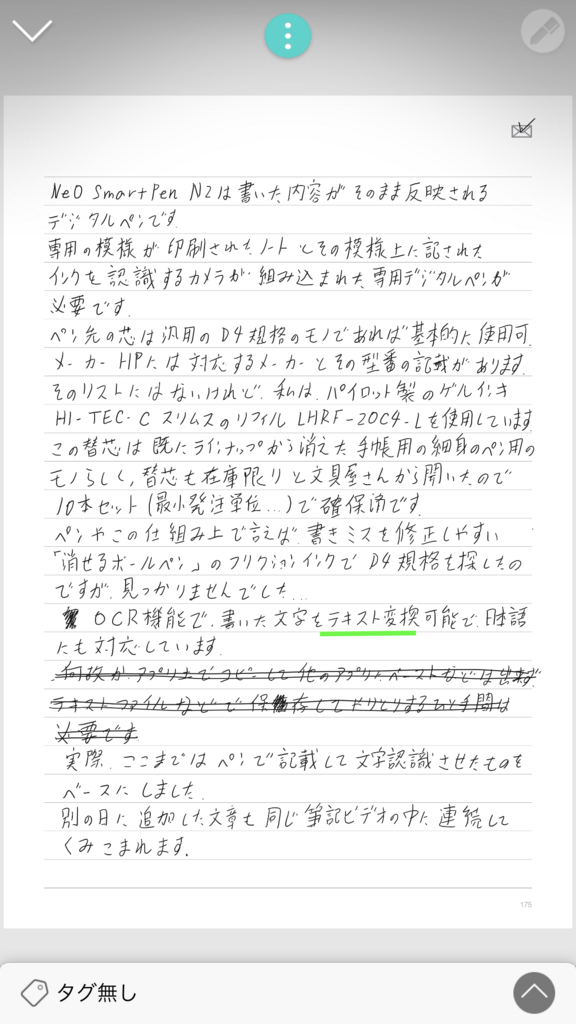 NeO SmartPen N2は書いた内容がそのまま反映される
デジタルペンです.
専用の模様が印刷されたノートとその模様上に記された
インクを認識するカメラが組み込まれた専用デジタルペンが
必要です.
ペン先の芯は汎用のD4規格のモノであれば基本的に使用可.
メーカーHPには対応するメーカーとその型番の記載があります.
そのリストにはないけれど、私は、パイロット製のゲルインキ
HI-TEC-C スリムスのリフィル LHRF-20C4-Lを使用しています
この替芯は既にラインナップから消えた手帳用の細身のペン用の
モノらしく,替芯も在庫限りと文具屋さんから聞いたので
10本セット(最小発注単位...)で確保済です.
ペンやこの仕組み上で言えば、書きミスを修正しやすい
「消せるボールペン」のフリクションインクでD4規格を探したの
ですが、見つかりませんでした...
OCR機能で、書いた文字をテキスト変換可能で、日本語
にも対応しています.
何故かアプリ上でコピーして他のアプリにペーストなどは出来ず
テキストファイルなどで保存してやりとりするひと手間は
必要です
実際、ここまではペンで記載して文字認識させたものを
ベースにしました.
別の日に追加した文章も同じ筆記ビデオの中に連続して
くみこまれます.
175
タグ無し